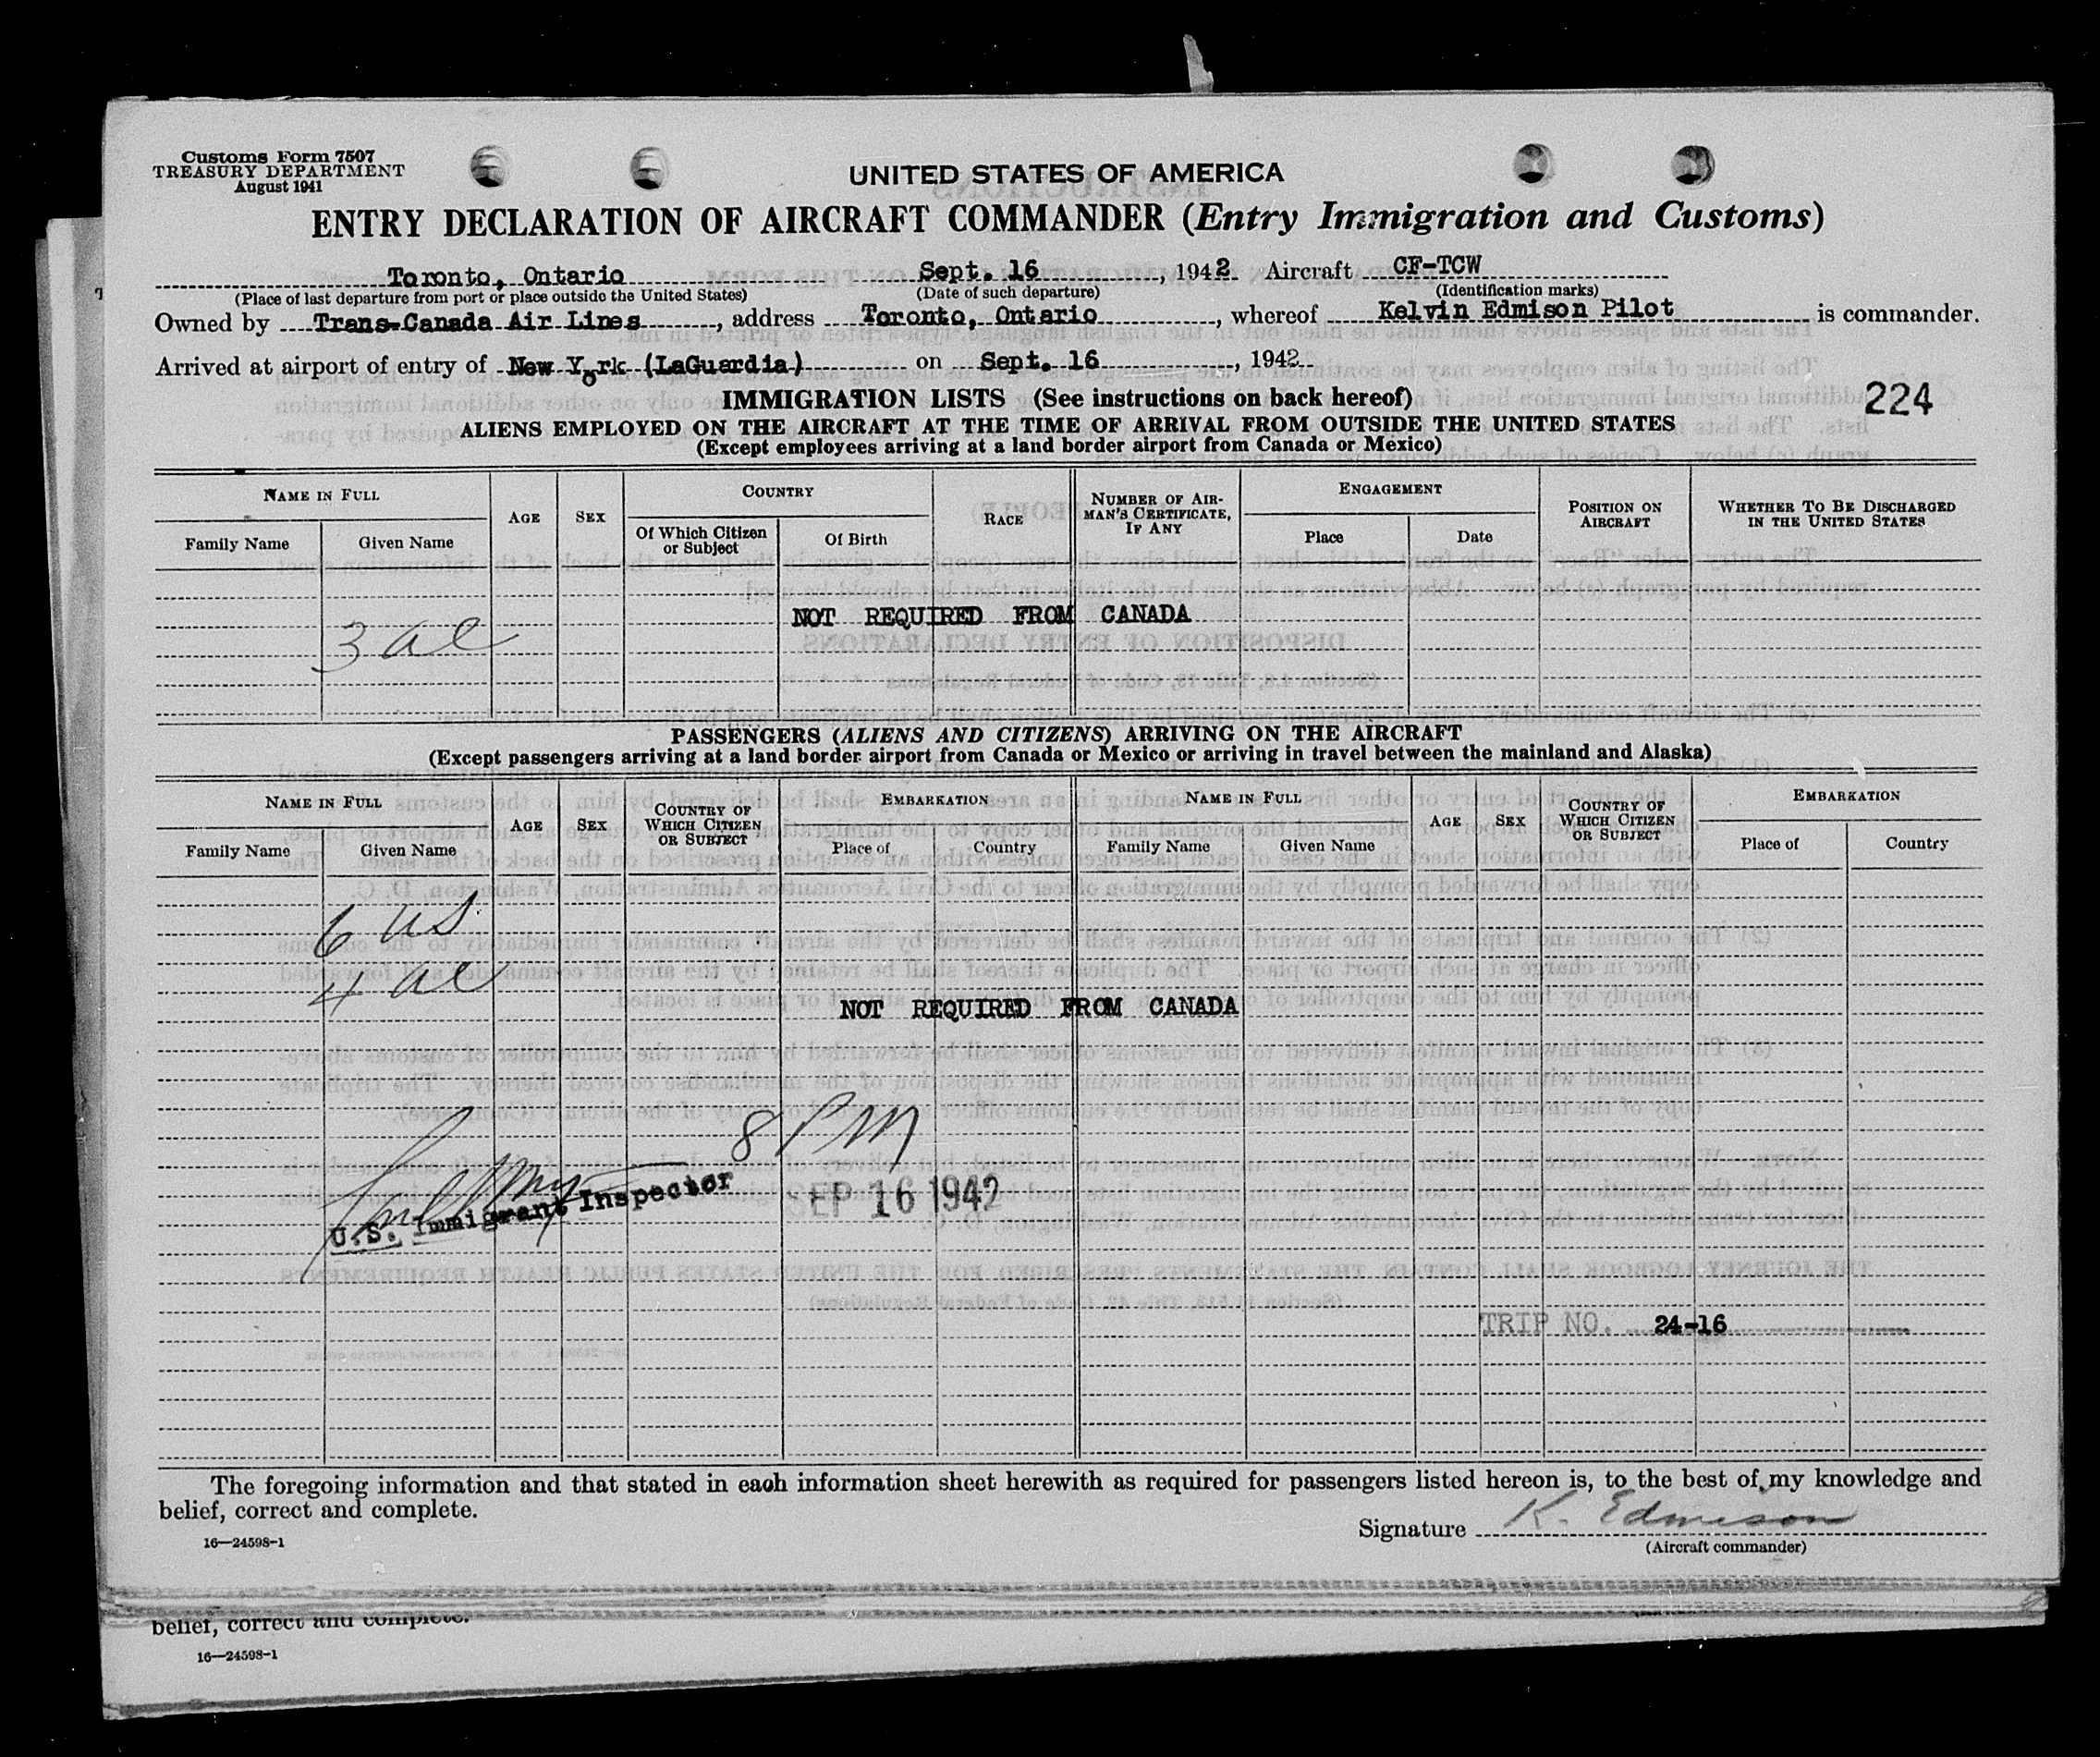 Customs Form 7507
TREASURY DEPARTMENT
August 1941
UNITED STATES OF AMERICA
ENTRY DECLARATION OF AIRCRAFT COMMANDER (Entry Immigration and Customs)
Toronto, Ontario Sept. 16, 1942 Aircraft CF-TCW
(Place of last departure from port or place outside the United States) (Date of such departure) (Identification marks)
Owned by Trans-Canada Air Lines, address Toronto, Ontario, whereof Kelvin Edmison Pilot is commander.
Arrived at airport of entry of New York (LaGuardia) on Sept. 16, 1942
IMMIGRATION LISTS (See instructions on back hereof) 224
ALIENS EMPLOYED ON THE AIRCRAFT AT THE TIME OF ARRIVAL FROM OUTSIDE THE UNITED STATES
(Except employees arriving at a land border airport from Canada or Mexico)
NAME IN FULL AGE SEX COUNTRY RACE NUMBER OF AIR-MAN'S CERTIFICATE, IF ANY ENGAGEMENT POSITION ON AIRCRAFT WHETHER TO BE DISCHARGED IN THE UNITED STATES
Family Name Given Name Of Which Citizen or Subject Of Birth Place Date
NOT REQUIRED FROM CANADA
3 al
PASSENGERS (ALIENS AND CITIZENS) ARRIVING ON THE AIRCRAFT
(Except passengers arriving at a land border airport from Canada or Mexico or arriving in travel between the mainland and Alaska)
NAME IN FULL AGE SEX COUNTRY OF WHICH CITIZEN OR SUBJECT EMBARKATION NAME IN FULL AGE SEX COUNTRY OF WHICH CITIZEN OR SUBJECT EMBARKATION
Family Name Given Name Place of Country Family Name Given Name Place of Country
6 US
4 al
NOT REQUIRED FROM CANADA
8 PM
U.S. Immigrant Inspector SEP 16 1942
TRIP NO. 24-16
The foregoing information and that stated in each information sheet herewith as required for passengers listed hereon is, to the best of my knowledge and
belief, correct and complete.
Signature K. Edmison
16—24598-1 (Aircraft commander)
belief, correct and complete.
16—24598-1